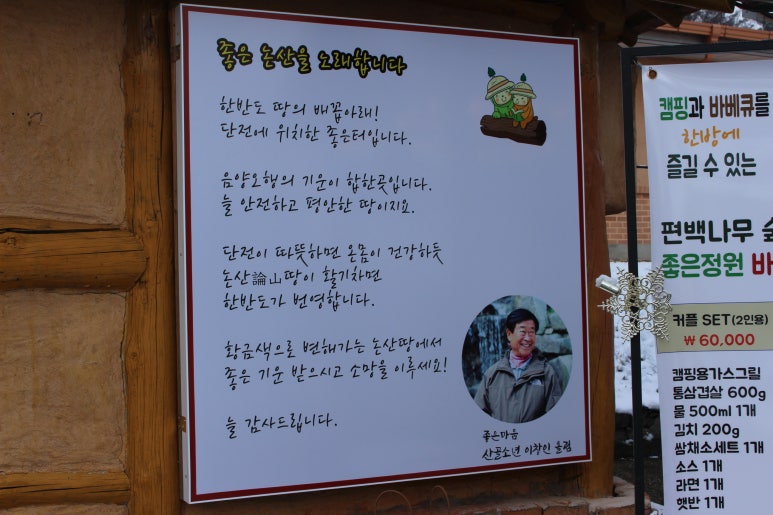 좋은 논산을 노래합니다
한반도 땅의 배꼽아래!
단전에 위치한 좋은터입니다.
음양오행의 기운이 합한곳입니다.
늘 안전하고 평안한 땅이지요.
단전이 따뜻하면 온몸이 건강하듯
논산論山땅이 활기차면
한반도가 번영합니다.
황금색으로 변해가는 논산땅에서
좋은 기운 받으시고 소망을 이루세요!
늘 감사드립니다.
좋은마음
산골소년 이창인 올림
캠핑과 바베큐를
한방에
즐길 수 있는
편백나무 숲
좋은정원 바
커플 SET(2인용)
₩ 60,000
캠핑용가스그릴
통삼겹살 600g
물 500ml 1개
김치 200g
쌈채소세트 1개
소스 1개
라면 1개
햇반 1개